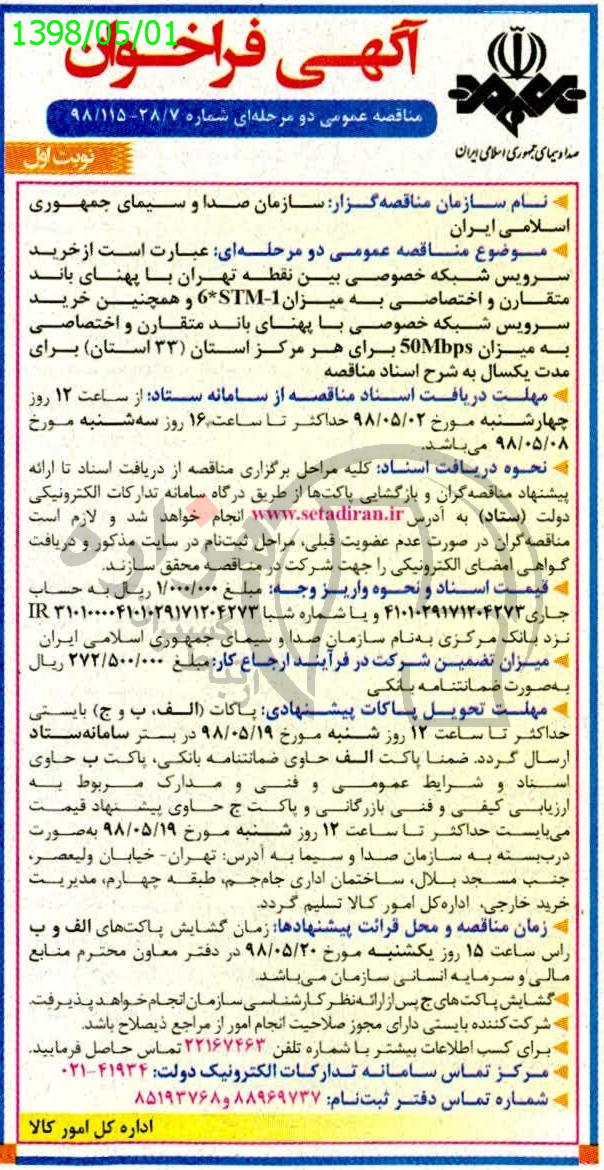 1398/05/01
آگهی فراخوان
مناقصه عمومی دو مرحله‌ای شماره ۲۸/۷-۹۸/۱۱۵
صدا و سیمای جمهوری اسلامی ایران
نوبت اول
نام سازمان مناقصه‌گزار: سازمان صدا و سیمای جمهوری
اسلامی ایران
موضوع مناقصه عمومی دو مرحله‌ای: عبارت است از خرید
سرویس شبکه خصوصی بین نقطه تهران با پهنای باند
متقارن و اختصاصی به میزان 6*STM-1 و همچنین خرید
سرویس شبکه خصوصی با پهنای باند متقارن و اختصاصی
به میزان 50Mbps برای هر مرکز استان (۳۳ استان) برای
مدت یکسال به شرح اسناد مناقصه
مهلت دریافت اسناد مناقصه از سامانه ستاد: از ساعت ۱۲ روز
چهارشنبه مورخ ۹۸/۰۵/۰۲ حداکثر تا ساعت ۱۶ روز سه‌شنبه مورخ
۹۸/۰۵/۰۸ می‌باشد.
نحوه دریافت اسناد: کلیه مراحل برگزاری مناقصه از دریافت اسناد تا ارائه
پیشنهاد مناقصه‌گران و بازگشایی پاکت‌ها از طریق درگاه سامانه تدارکات الکترونیکی
دولت (ستاد) به آدرس www.setadiran.ir انجام خواهد شد و لازم است
مناقصه‌گران در صورت عدم عضویت قبلی، مراحل ثبت‌نام در سایت مذکور و دریافت
گواهی امضای الکترونیکی را جهت شرکت در مناقصه محقق سازند.
قیمت اسناد و نحوه واریز وجه: مبلغ ۱/۰۰۰/۰۰۰ ریال به حساب
جاری ۴۱۰۱۰۲۹۱۷۱۲۰۴۲۷۳ و یا شماره شبا IR ۳۱۰۱۰۰۰۰۴۱۰۱۰۲۹۱۷۱۲۰۴۲۷۳
نزد بانک مرکزی به‌نام سازمان صدا و سیمای جمهوری اسلامی ایران
میزان تضمین شرکت در فرآیند ارجاع کار: مبلغ ۲۷۲/۵۰۰/۰۰۰ ریال
به‌صورت ضمانتنامه بانکی
مهلت تحویل پاکات پیشنهادی: پاکات (الف، ب و ج) بایستی
حداکثر تا ساعت ۱۲ روز شنبه مورخ ۹۸/۰۵/۱۹ در بستر سامانه ستاد
ارسال گردد. ضمنا پاکت الف حاوی ضمانتنامه بانکی، پاکت ب حاوی
اسناد و شرایط عمومی و فنی و مدارک مربوط به
ارزیابی کیفی و فنی بازرگانی و پاکت ج حاوی پیشنهاد قیمت
می‌بایست حداکثر تا ساعت ۱۲ روز شنبه مورخ ۹۸/۰۵/۱۹ به‌صورت
درب‌بسته به سازمان صدا و سیما به آدرس: تهران- خیابان ولیعصر،
جنب مسجد بلال، ساختمان اداری جام‌جم، طبقه چهارم، مدیریت
خرید خارجی، اداره‌کل امور کالا تسلیم گردد.
زمان مناقصه و محل قرائت پیشنهادها: زمان گشایش پاکت‌های الف و ب
راس ساعت ۱۵ روز یکشنبه مورخ ۹۸/۰۵/۲۰ در دفتر معاون محترم منابع
مالی و سرمایه انسانی سازمان می‌باشد.
گشایش پاکت‌های ج پس از ارائه نظر کارشناسی سازمان انجام خواهد پذیرفت.
شرکت‌کننده بایستی دارای مجوز صلاحیت انجام امور از مراجع ذیصلاح باشد.
برای کسب اطلاعات بیشتر با شماره تلفن ۲۲۱۶۷۴۶۳ تماس حاصل فرمایید.
مرکز تماس سامانه تدارکات الکترونیک دولت: ۴۱۹۳۴-۰۲۱
شماره تماس دفتر ثبت‌نام: ۸۸۹۶۹۷۳۷ و ۸۵۱۹۳۷۶۸
اداره کل امور کالا